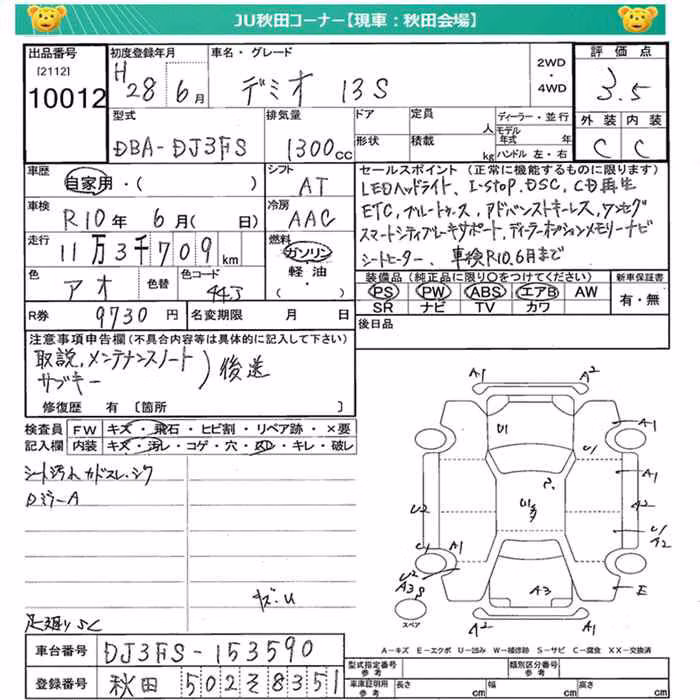 JU秋田コーナー【現車：秋田会場】
出品番号
[2112]
10012
初度登録年月
H28 6月
車名・グレード
デミオ 13S
2WD
・
4WD
評価点
3.5
外装 内装
C C
型式
DBA-DJ3FS
排気量
1300cc
ドア
定員
人
形状
積載
kg
ディーラー・並行
モデル年式 年
ハンドル 左・右
車歴
自家用・( )
シフト
AT
車検
R10年 6月( 日)
冷房
AAC
走行
11万3千709km
燃料
ガソリン
軽油・
( )
色
アオ
色替
色コード
44J
R券
9730円
名変期限 月 日
セールスポイント(正常に機能するものに限ります)
LEDヘッドライト、I-STOP、DSC、CD再生
ETC、ブルートゥース、アドバンストキーレス、ワンセグ
スマートシティブレーキサポート、ディーラーオプションメモリーナビ
シートヒーター、車検R10.6月まで
装備品(純正品に限り○をつけてください)
PS PW ABS エアB AW
SR ナビ TV カワ
新車保証書
有・無
後日品
注意事項申告欄(不具合内容等は具体的に記入して下さい)
取説,メンテナンスノート
サブキー
)後送
修復歴 有〔箇所 〕
検査員記入欄
FW キズ・飛石・ヒビ割・リペア跡・×要
内装 キズ・汚レ・コゲ・穴・スレ・キレ・破レ
シート汚レ
DミラーA
キズ.U
足廻りSC
A1 A2
U1
A1
U1
A1
A2
U1
U2
U1
A2
U1
A1
U2
A3S
E
A3
スペア
A2
A1
A−キズ E−エクボ U−凹み W−補修跡 S−サビ C−腐食 XX−交換済
車台番号
DJ3FS-153590
登録番号
秋田 502 8351
型式指定番号
参考
類別区分番号
参考
車庫証明用
参考
長さ cm
幅 cm
高さ cm